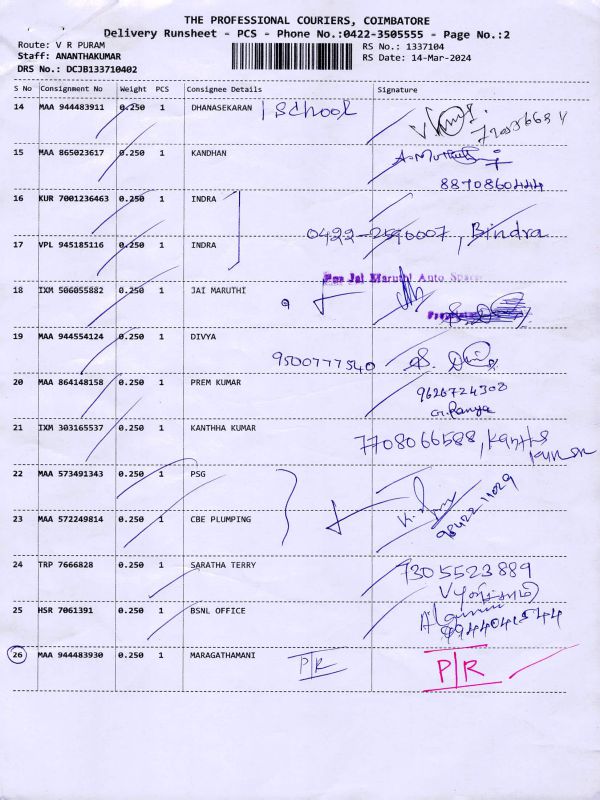 THE PROFESSIONAL COURIERS, COIMBATORE
Delivery Runsheet - PCS - Phone No.:0422-3505555 - Page No.:2
Route: V R PURAM
Staff: ANANTHAKUMAR
DRS No.: DCJB133710402
RS No.: 1337104
RS Date: 14-Mar-2024
S No Consignment No Weight PCS Consignee Details Signature
14 MAA 944483911 0.250 1 DHANASEKARAN | School
15 MAA 865023617 0.250 1 KANDHAN
8870860444
16 KUR 7001236463 0.250 1 INDRA
0422-2590007, Bindra
17 VPL 945185116 0.250 1 INDRA
For Jai Maruthi Auto Space
18 IXM 506055882 0.250 1 JAI MARUTHI
19 MAA 944554124 0.250 1 DIVYA
9500777540
20 MAA 864148158 0.250 1 PREM KUMAR
9626724308
G. Ramya
21 IXM 303165537 0.250 1 KANTHHA KUMAR
7708066588,
22 MAA 573491343 0.250 1 PSG
23 MAA 572249814 0.250 1 CBE PLUMPING
98422 11029
24 TRP 7666828 0.250 1 SARATHA TERRY
7305523889
25 HSR 7061391 0.250 1 BSNL OFFICE
26 MAA 944483930 0.250 1 MARAGATHAMANI P/R P/R